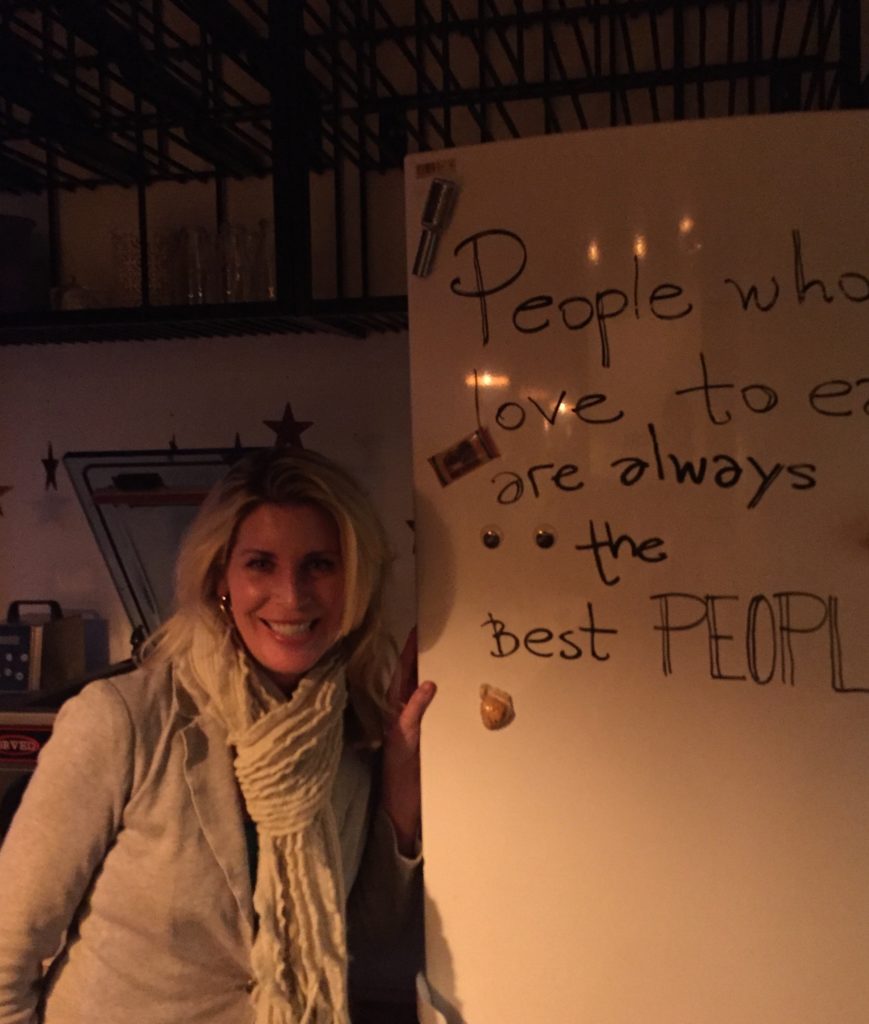 People who
love to ea
are always
the
Best PEOPL
RVEI